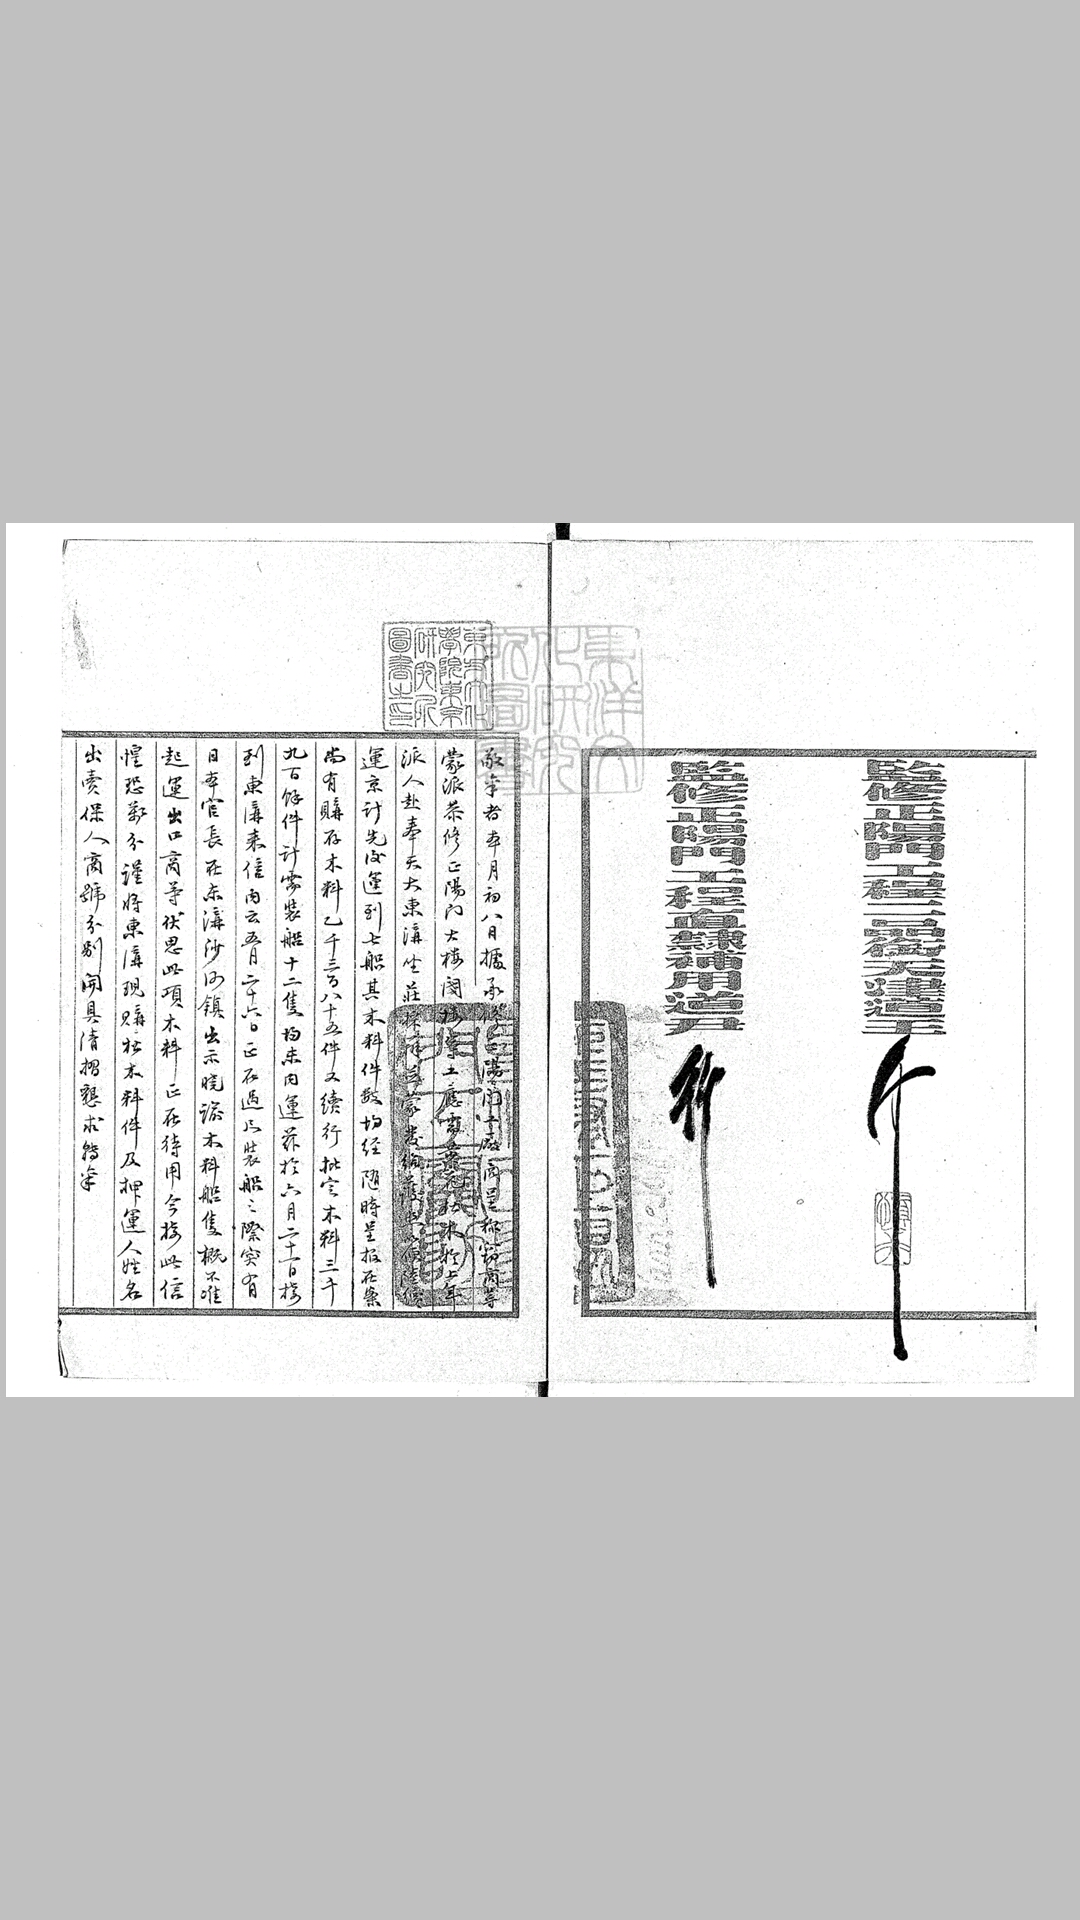 監修正陽門工程三品銜天建造王
監修正陽門工程直隸補用道尹
敬稟者本月初八日據承修正陽門工廠商呈称窃商等
蒙派恭修正陽門大楼閣楼要工應需黄松木於上年
派人赴奉天大東溝坐莊採辦並蒙發給護照
運京計先後運到七船其木料件数均经随時呈报在案
尚有購存木料乙千三百八十五件又續行批定木料三千
九百餘件計需装船十二隻均未内運兹於六月二十一日接
到東溝来信内云五月二十六日正在過凡装船之際突有
日本官長在东溝沙河鎮出示晓諭木料船隻概不准
起運出口商等伏思此項木料正在待用今接此信
惶恐萬分謹將東溝現購松木料件及押運人姓名
出賣保人商號分别開具清摺懇求转稟
東方文化
學院東京
研究所
圖書之印
東洋文
化研究
所圖書